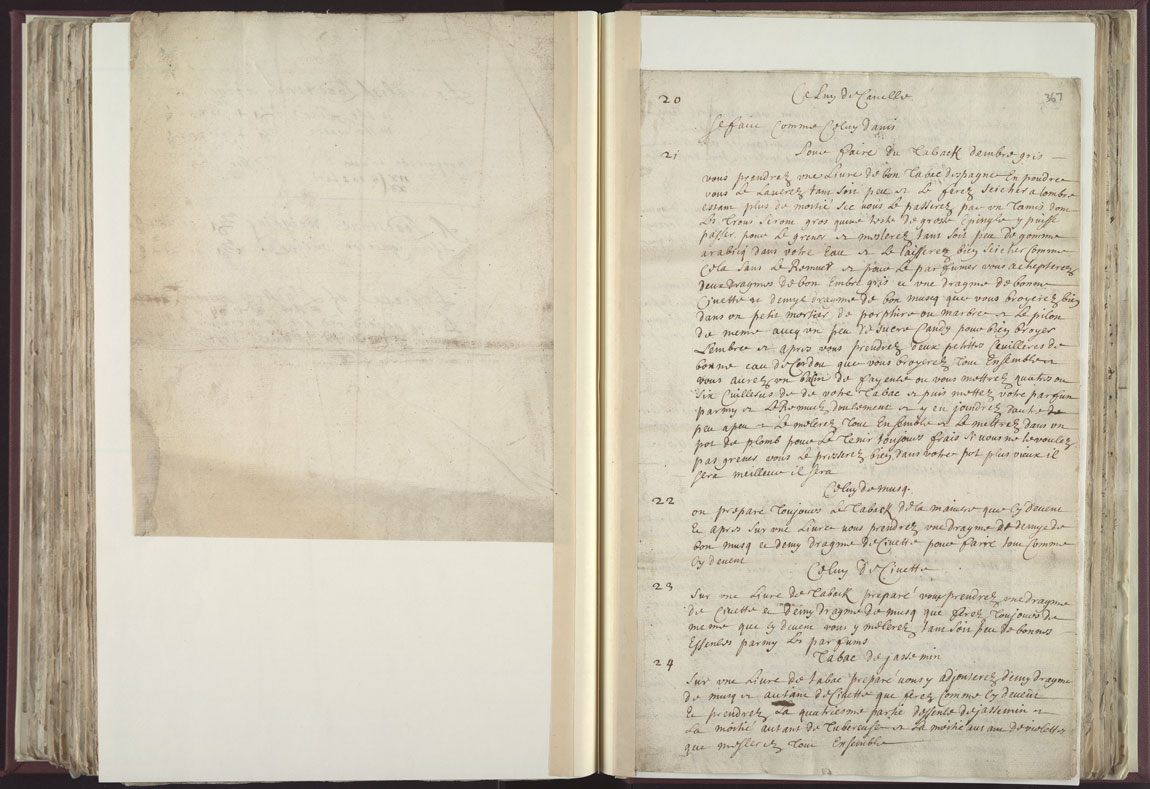 20 Celuy de Canelle. 367
se faict Comme Celuy danis
21 Pour faire du Taback dembre gris
vous prendrez vne Livre de bon Tabac despagne En poudre
vous Le Laverez tant soit peu et Le ferez seicher a Lombre
estant plus de moitie sec vous Le passerez par vn Tamis dont
Les trous seront gros quune teste de grosse Epingle y puisse
passer pour Le grener et meslerez tant soit peu de gomme
arabiq dans votre Eau et Le Laisserez bien seicher Comme
Cela sans Le Remuer et pour Le parfumer vous achepterez
deux dragmes de bon Embre gris et vne dragme de bonne
Civette et demye dragme de bon musq que vous broyerez bien
dans vn petit mortier de porphire ou marbre et Le pilon
de meme avecq vn peu de sucre Candy pour bien broyer
Lembre et apres vous prendrez deux petittes Cuillerés de
bonne eau de Cordou que vous broyerez Tout Ensemble et
vous aurez vn basin de fayence ou vous mettrez quatre ou
six Cuillerés de de votre Tabac et puis mettez votre parfum
parmy et LeRemuez doulement et y en joindrez dautre de
peu a peu et Le melerez Tout Ensemble et Le mettrez dans vn
pot de plomb pour Le Tenir toujours frais si vous ne le voulez
pas grener vous Le presserez bien dans votre pot plus vieux il
sera meilleur il sera
Celuy de musq.
22 on prepare Toujours Le Taback de La maniere que Cy devent
Et apres sur vne Livre vous prendrez vne dragme et demye de
bon musq et demy dragme de Civette pour faire tout Comme
Cy devent
Celuy De Civette
23 Sur vne Livre de Taback preparé vous prendrez vne dragme
de Civette et demy dragme de musq que ferez Toujours de
meme que Cy devent vous y melerez tant soit peu de bonnes
Essences parmy Les parfums
Tabac de jassemin
24 Sur vne Livre de tabac preparé vous y adjouterez demy dragme
de musq et autant de Civette que ferez Comme Cy devent
Et prendrez La quatriesme partie dessence de jassemin et
La moitié autant de Tubereuse et La moitié autant de violette
que meslerez Tout Ensemble